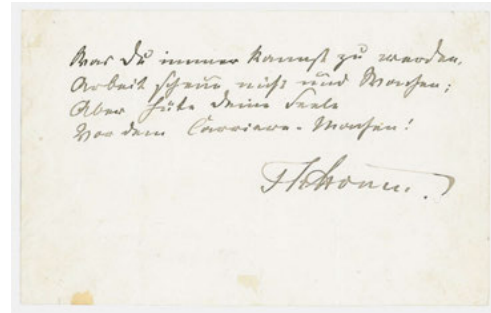 Was Du immer kannst zu werden,
Arbeit scheue nicht und Wachen;
Aber hüte Deine Seele
Vor dem Carriere-Machen!
ThStorm.